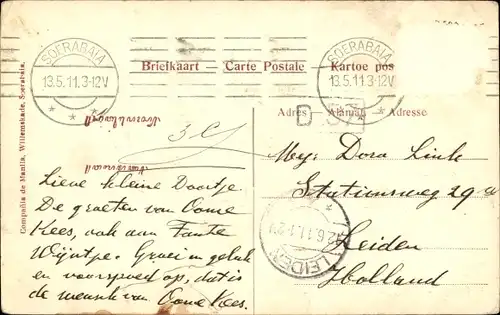 SOERABAIA
13.5.11.3-12V
SOERABAIA
13.5.11.3-12V
Briefkaart Carte Postale Kartoe pos
Adres — Alamat — Adresse
D 37
Compañia de Manila, Willemskade, Soerabaia.
Lieve kleine Doortje
De groeten van Oome
Kees, ook aan Tante
Wijntje. Groei in geluk
en voorspoed op, dat is
de wensch van Oome Kees.
Mej: Dora Link
Stationsweg 29a
Leiden
Holland
LEIDEN
12.6.11.1-2V